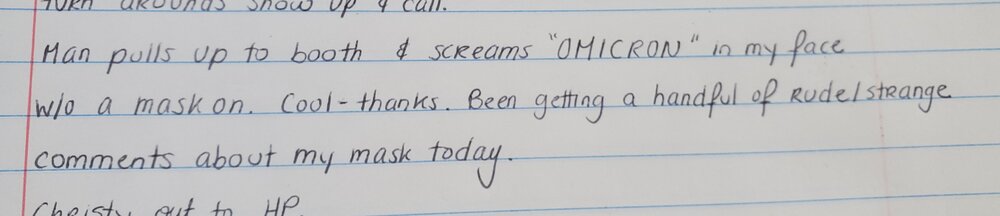 turn arounds show up & call.
Man pulls up to booth & screams "OMICRON" in my face
w/o a mask on. Cool-thanks. Been getting a handful of rude/strange
comments about my mask today.
Christy out to HP